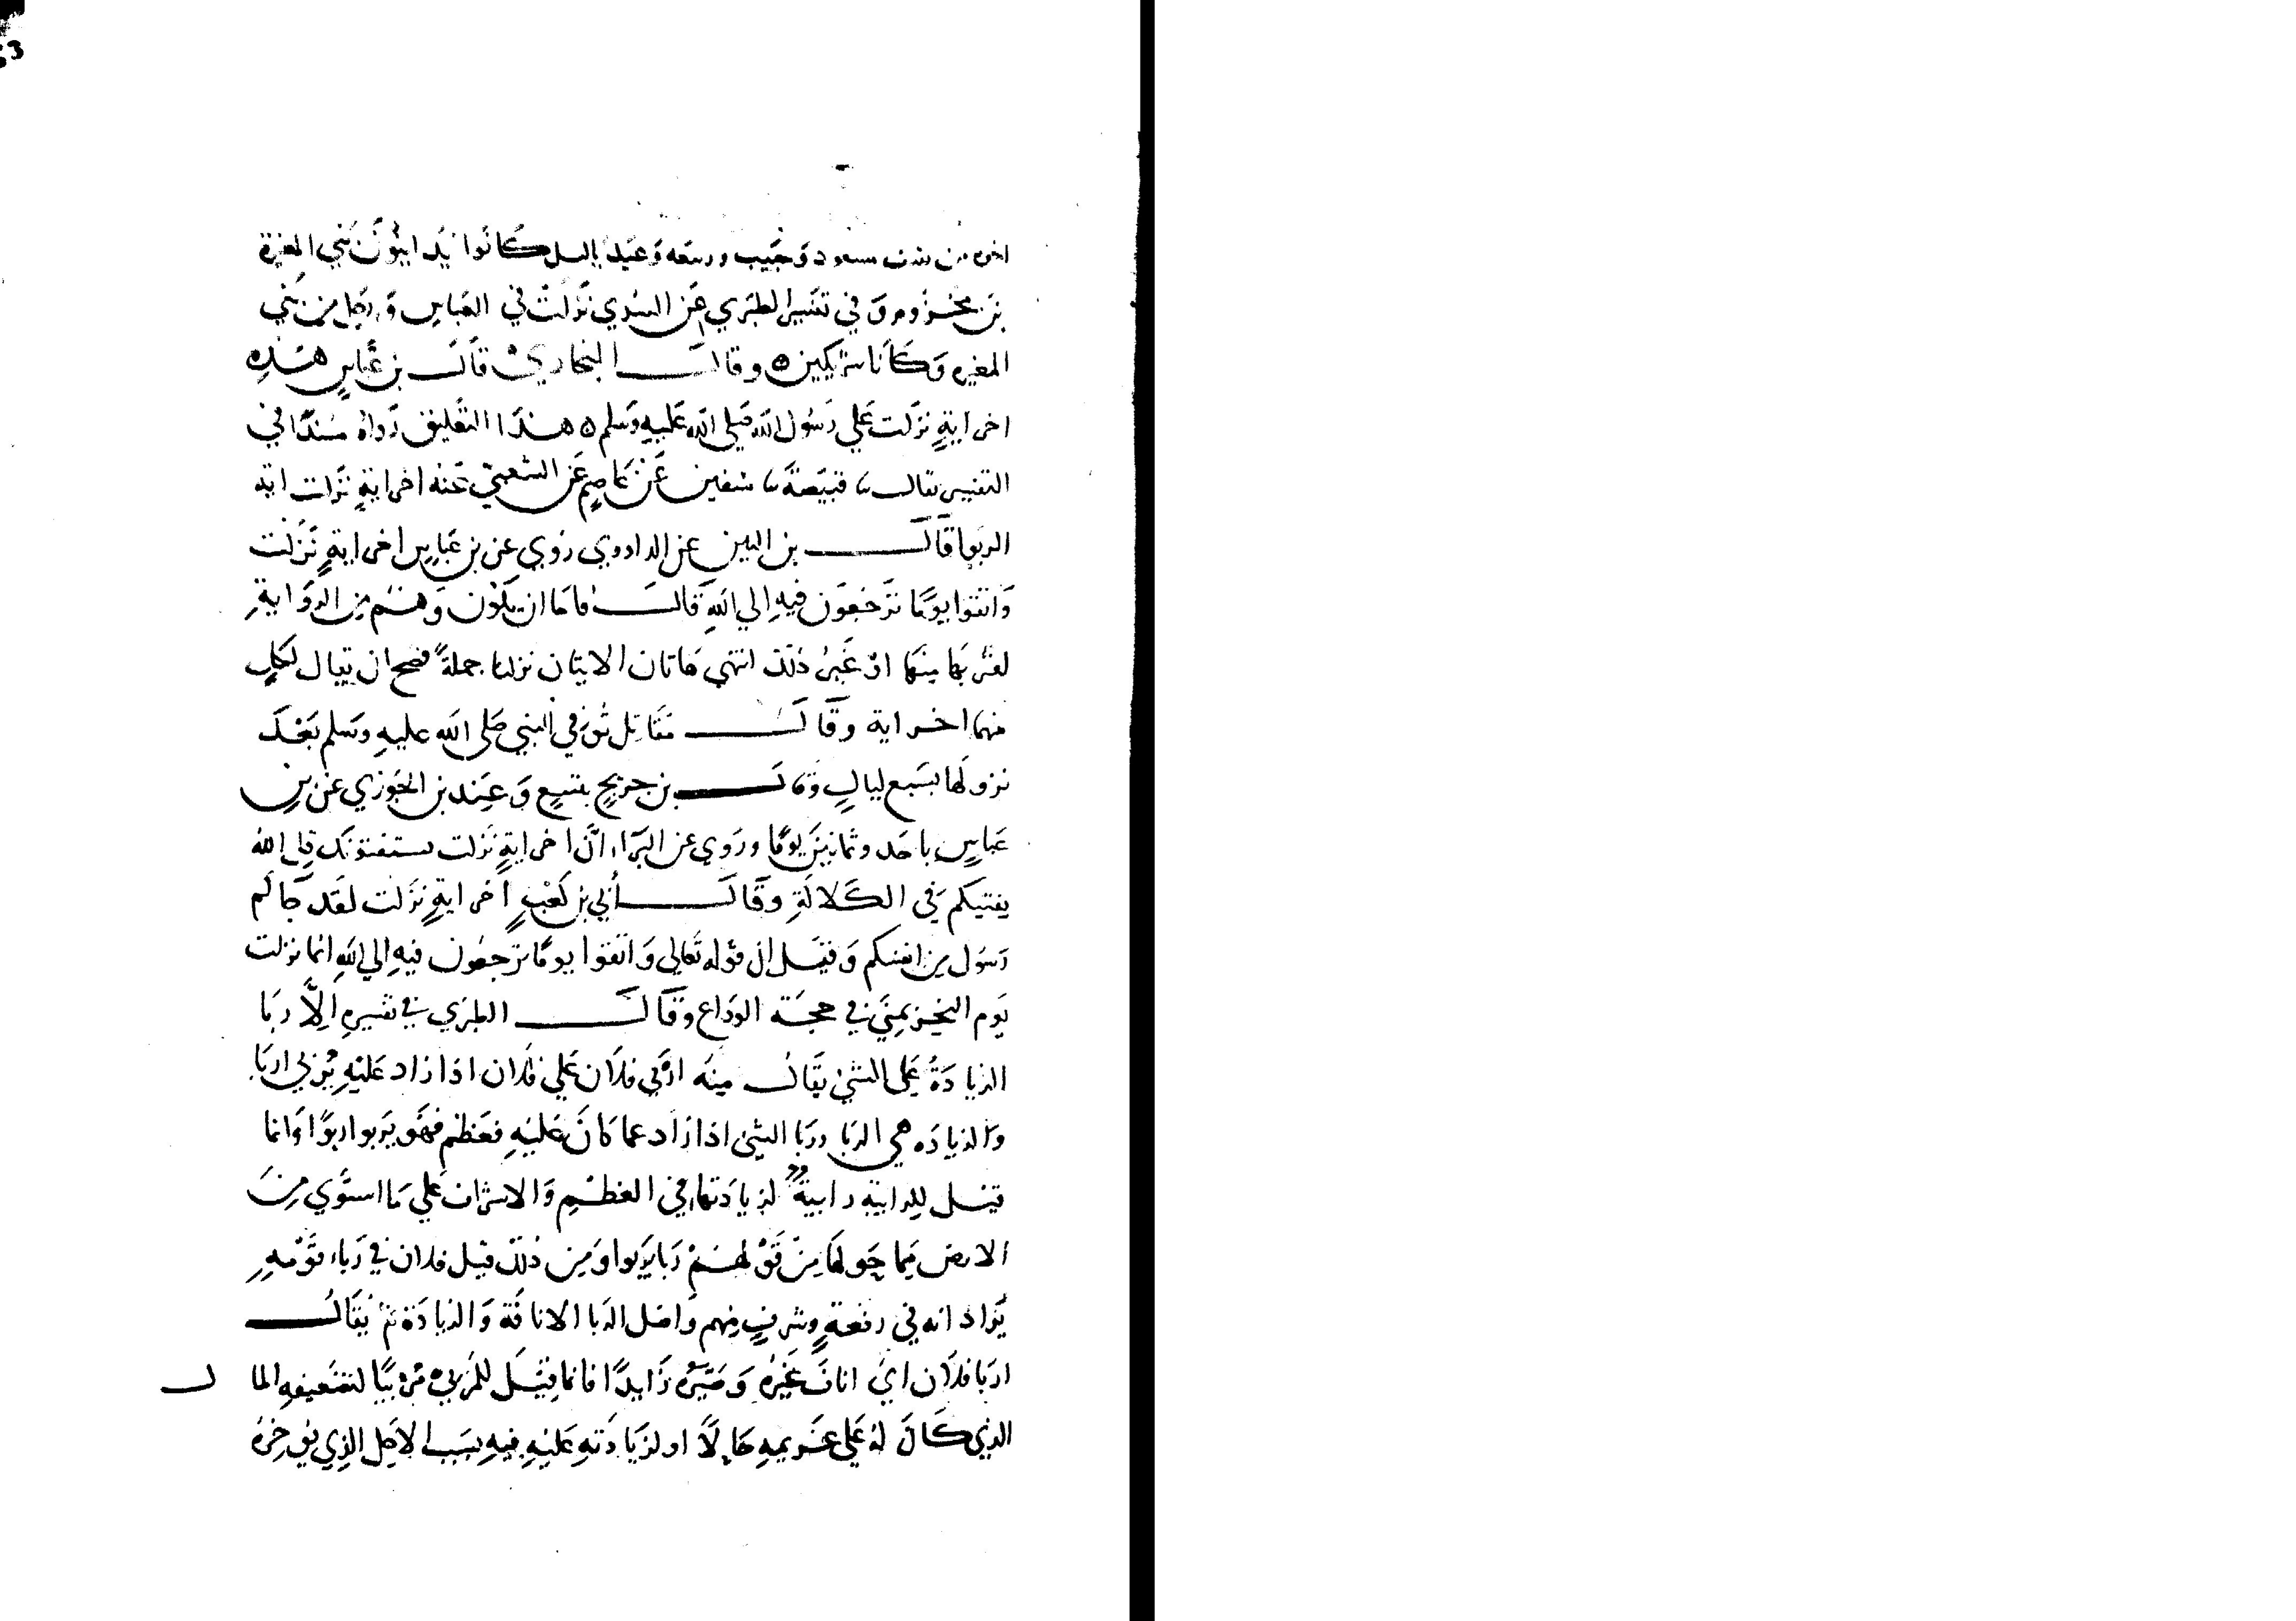 اخوه من ثقيف مسعود وَحَبيب وربيعه وَعَبد ياليل كَانُوا يُداينُونَ بَني المغيرة
بن مخزوم وَفي تفسير الطبَري عَن السُدي نَزلَتْ في العبَاسِ وَرَجل من بَني
المغيره وَكَانَا شريكين ه وقالَ البخاريُ قَالَ بن عبَاسٍ هَذِه
اخر ايةٍ نزَلت عَلي رَسُول الله صَلي الله عَليهِ وَسَلم ه هَذَا التعْليق رَوَاهُ مسْندًا في
التفسير فقال ثنا قبيْصَة ثنا سُفين عَنْ عَاصِمٍ عَن الشعبيّ عَنه اخر ايةٍ نزَلت اية
الربَوا قَالَ بن التين عن الداودي رُوي عن بن عَباسٍ اخر ايةٍ نَزلت
وَاتقوا يومًا ترْجَعوُن فيهِ الي اللهِ قَالَ فامَا ان يَكون وَهْم من الروَايةِ
لقربهَا منهَا اوْ غَيرُ ذلك انتهي هَاتان الايتان نزلتا جملةً فصَح ان يقال لكلٍ
منهما اخر اية وقَالَ مقَاتِل تُوُفي النبي صَلى الله عليهِ وَسَلم بَعْدَ
نزولهَا بسَبع ليالٍ وَقالَ بن جريجٍ بتسِعٍ وَعِند بن الجَوزي عَن بن
عبَاسٍ باحَد وثمانِينَ يومًا ورَوي عن البَرَاء انَّ اخر ايةٍ نَزلت يستفتونَك قل الله
يفتيكم في الكَلالَةِ وقَالَ أُبي بن كَعْبٍ أخر ايةٍ نزَلت لقَد جَاكم
رَسُول من انفسكم وَقيَل ان قوْله تعَالي وَاتقوا يومًا ترْجعُون فيهِ الي اللهِ انما نزلت
يَوم النحر بمِنَي في حجَة الوَداع وقَالَ الطبرَي في تفسيرهِ الرِّبَا
الزيادَةُ عَلى الشيْ يقَالُ منه ارْبَي فلاَن عَلي فلاَن اذا زَاد عَليْهِ يُرْبي اربَا
وَالزيادَه هي الربَا وربَا الشيْ اذا زاد عما كانَ عَليْهِ فعَظم فهَو يَربوا ربوًا وَانما
قيل للرابية رابيةً لزيادَتهَا في العظم وَالاشراف عَلي مَا استَوي مِنَ
الارض مما حَولهَا من قَوْلهمْ رَبَا يَربوا وَمن ذلك قيل فلان في رَباء قَوْمهِ
يُرَاد انه في رفعةٍ وشرفٍ منهم وَاصْل الرَبا الانافَة وَالزيادَة ثمَّ يُقَالُ
اربَا فلاَن ايْ انافَ غَيْرَه وَصَيرَه زَايدًا فانما قيْلَ للمُرْبي مُرْبيًا لتضعيفه المال
الذي كَانَ لهُ عَلي غريمهِ حَالًا او لزيَادَتهِ عَليْهِ فيهِ بسَبب الاجَل الذِي يؤخرُه